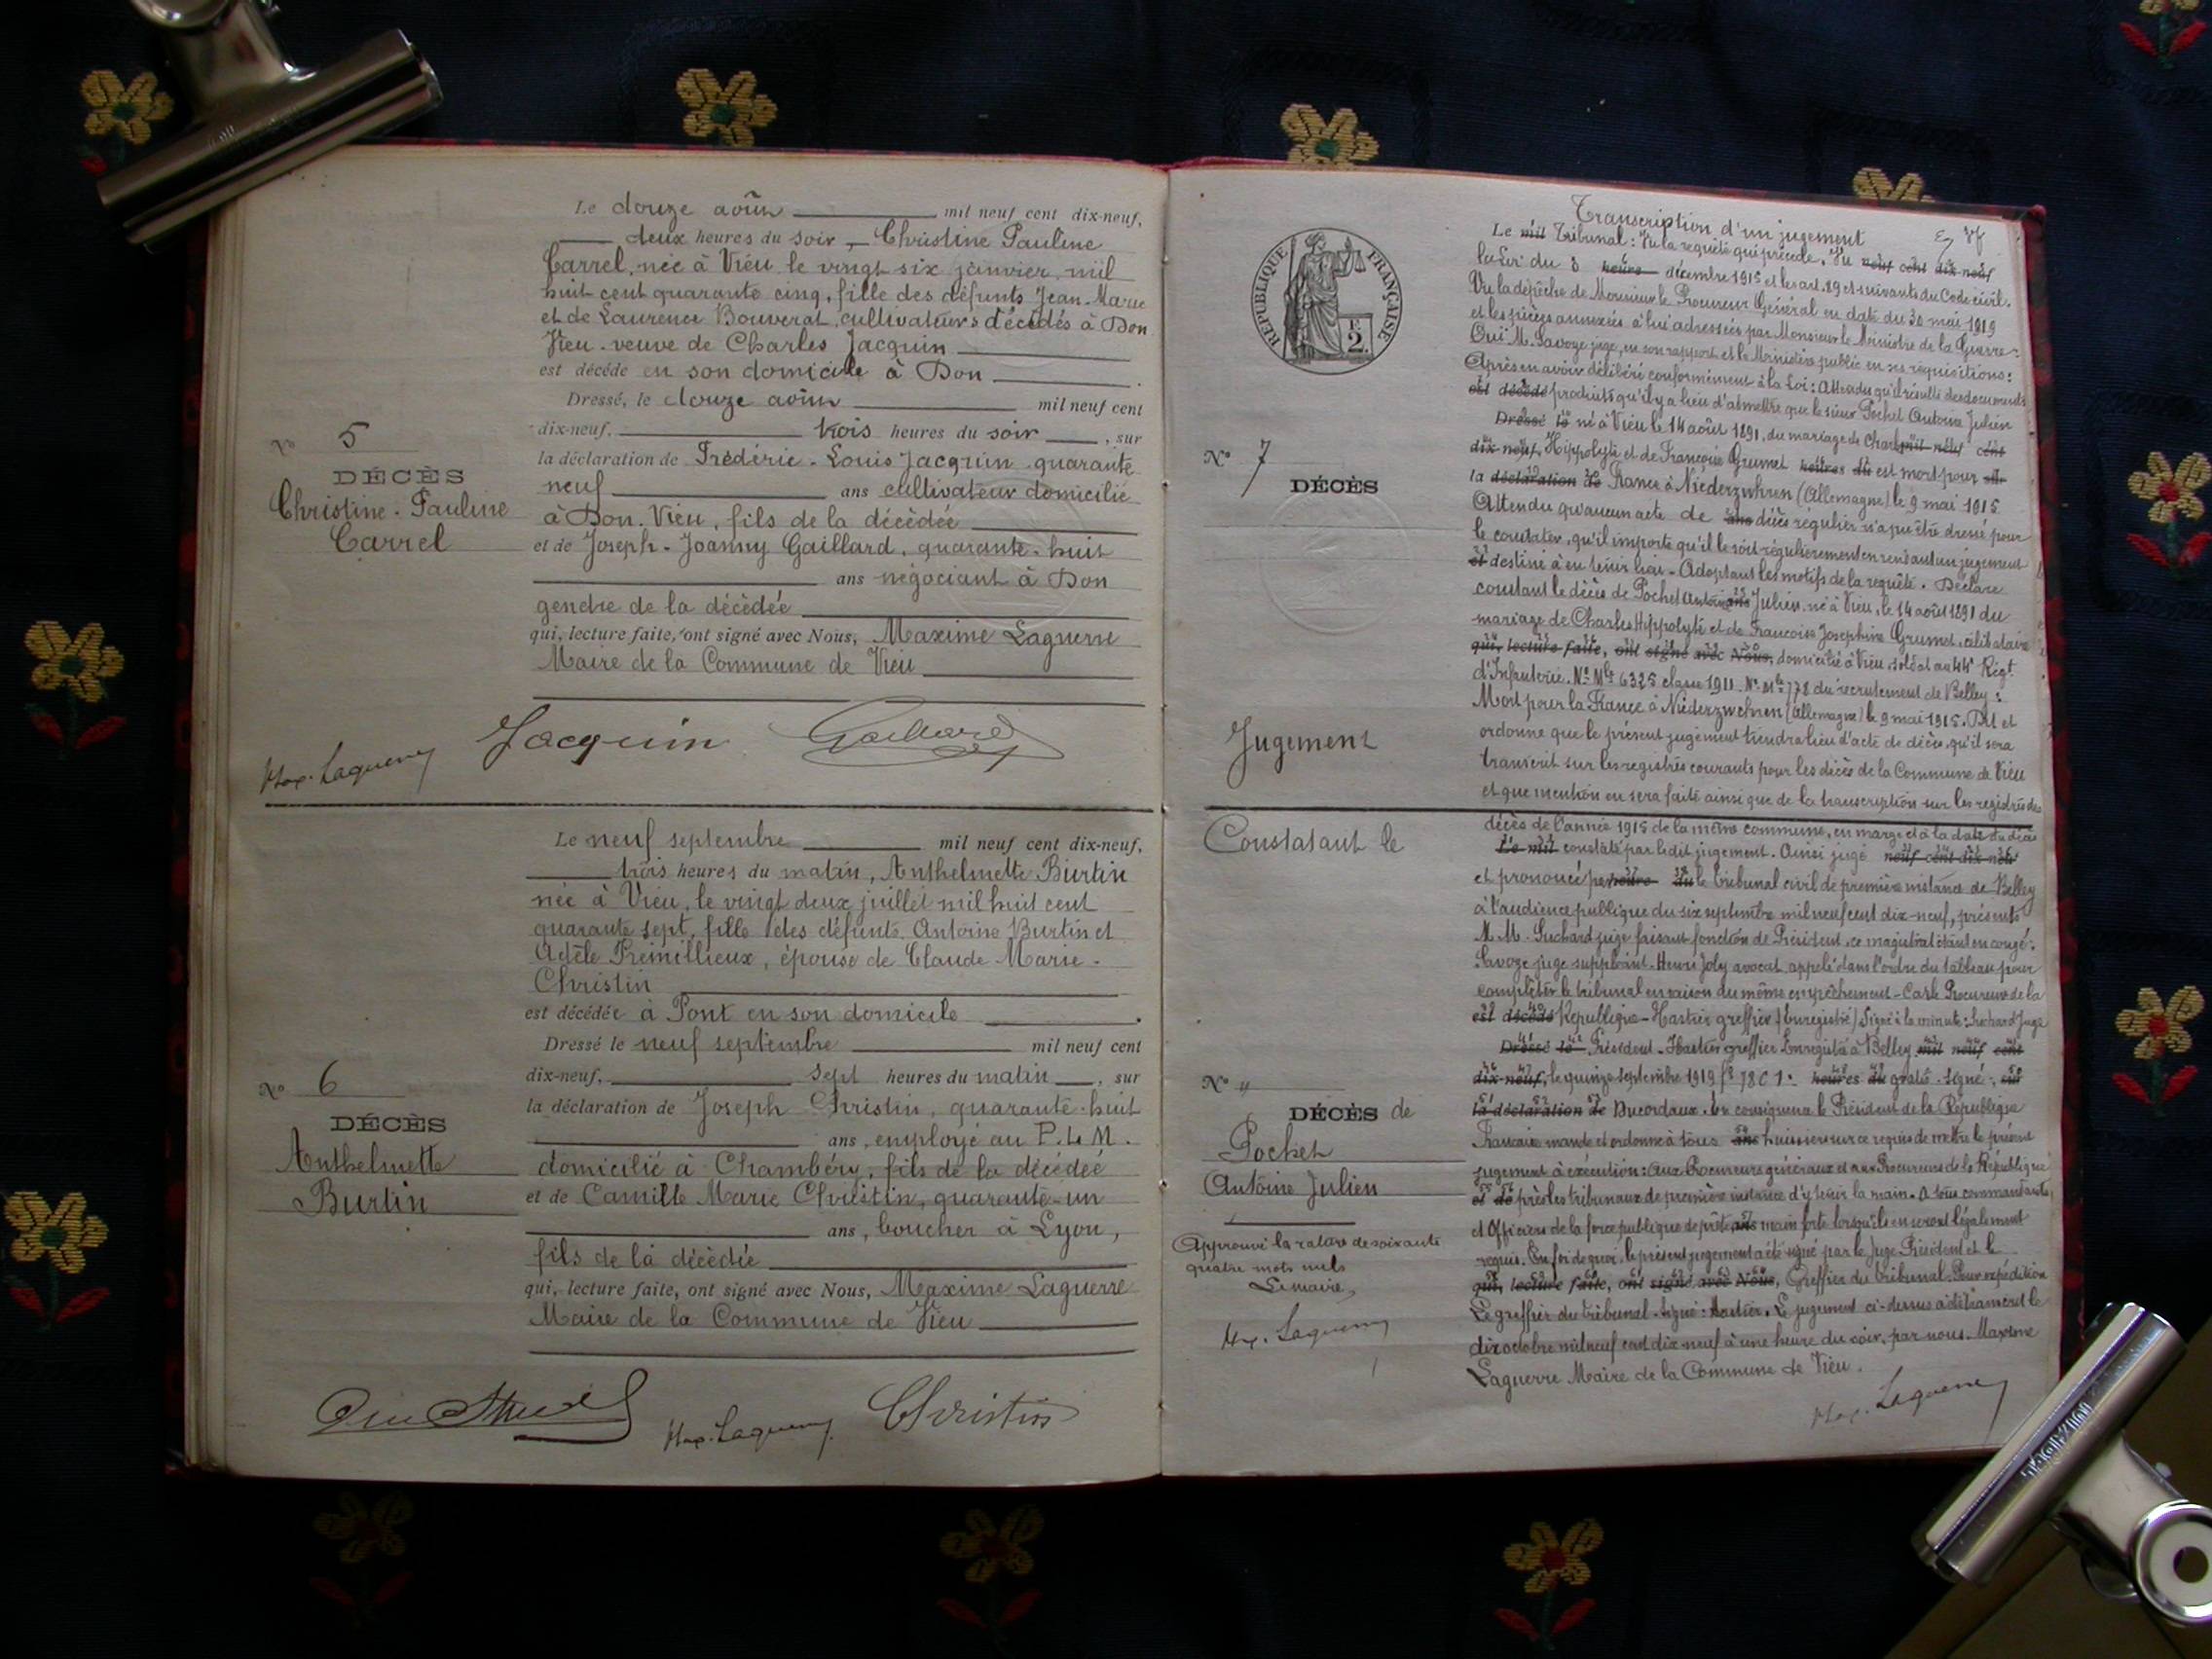 Le douze août mil neuf cent dix-neuf,
deux heures du soir, Christine Pauline
Carrel, née à Vieu le vingt six janvier mil
huit cent quarante cinq, fille des défunts Jean-Marie
et de Laurence Bouverat, cultivateurs décédés à Don
Vieu - veuve de Charles Jacquin
est décédé en son domicile à Don
Dressé, le douze août mil neuf cent
dix-neuf, trois heures du soir, sur
la déclaration de Fréderic-Louis Jacquin quarante
neuf ans cultivateur domicilié
à Don-Vieu, fils de la décèdée
et de Joseph-Joanny Gaillard, quarante-huit
ans négociant à Don
gendre de la décèdée
qui, lecture faite, ont signé avec Nous, Maxime Laguerre
Maire de la Commune de Vieu
N° 5
DÉCÈS
Christine-Pauline
Carrel
Max. Laguerre Jacquin Gaillard
Le neuf septembre mil neuf cent dix-neuf,
trois heures du matin, Anthelmette Burtin
née à Vieu, le vingt deux juillet mil huit cent
quarante sept, fille des défunts Antoine Burtin et
Adèle Prémillieux, épouse de Claude-Marie-
Christin
est décédée à Pont en son domicile
Dressé le neuf septembre mil neuf cent
dix-neuf, sept heures du matin, sur
la déclaration de Joseph Christin, quarante-huit
ans, employé au P.L.M.
domicilié à Chambéry, fils de la décédée
et de Camille Marie Christin, quarante-un
ans, boucher à Lyon,
fils de la décèdée
qui, lecture faite, ont signé avec Nous, Maxime Laguerre
Maire de la Commune de Vieu
N° 6
DÉCÈS
Anthelmette
Burtin
Max. Laguerre Christin
RÉPUBLIQUE FRANÇAISE
2
N° 7
DÉCÈS
Jugement
Constatant le
N° "
DÉCÈS de
Pochet
Antoine Julien
Approuvé la rature de soixante
quatre mots nuls
Le maire,
Max. Laguerre
Transcription d'un jugement
Le mil Tribunal: Vu la requête qui précède. Vu neuf cent dix-neuf
la Loi du 3 heure décembre 1915 et les art. 89 et suivants du Code civil.
Vu la dépêche de Monsieur le Procureur Général en date du 30 mai 1919
et les pièces annexées à lui adressées par Monsieur le Ministre de la Guerre:
Oui M. Savoye juge, en son rapport et le Ministère public en ses réquisitions:
Après en avoir délibéré conformément à la Loi: Attendu qu'il résulte des documents
est décédé produits qu'il y a lieu d'admettre que le sieur Pochet Antoine Julien
Dressé le né à Vieu le 14 août 1891, du mariage de Charles mil neuf cent
dix-neuf, Hippolyte et de Françoise Grumet heures du est mort pour sur
la déclaration de France à Niederzwhren (Allemagne) le 9 mai 1915
Attendu qu'aucun acte de ans décès régulier n'a pu être dressé pour
le constater, qu'il importe qu'il le soit régulièrement en rendant un jugement
et destiné à en tenir lieu - Adoptant les motifs de la requête. Déclare
constant le décès de Pochet Antoine ans Julien né à Vieu, le 14 août 1891 du
mariage de Charles Hippolyte et de Francoise Josephine Grumet, célibataire
qui, lecture faite, ont signé avec Nous, domicilié à Vieu soldat au 44e Régt
d'Infanterie. N° Mle 6325 classe 1911. N° Mle 778 du recrutement de Belley:
Mort pour la France à Niederzwehren (Allemagne) le 9 mai 1915. Dit et
ordonne que le présent jugement tiendra lieu d'acte de décès, qu'il sera
transcrit sur les registres courants pour les décès de la Commune de Vieu
et que mention en sera faite ainsi que de la transcription sur les registres des
décès de l'année 1915 de la même commune, en marge et à la date du décès
Le mil constaté par ledit jugement. Ainsi jugé neuf cent dix-neuf
et prononcé par heure du le tribunal civil de première instance de Belley
à l'audience publique du six septembre mil neuf cent dix-neuf, présents
M.M. juge faisant fonction de Président, ce magistrat étant en congé:
Savoye juge suppléant - Henri Joly avocat appelé dans l'ordre du tableau pour
compléter le tribunal en raison du même empêchement - Procureur de la
est décédé République - greffier (Enregistré) Signé à la minute: Juge
Dressé le Président - greffier Enregistré à Belley mil neuf cent
dix-neuf, le quinze septembre 1919 heures du gratis - signé: sur
la déclaration de En conséquence le Président de la République
Française mande et ordonne à tous ans huissiers sur ce requis de mettre le présent
jugement à exécution: Aux Procureurs généraux et aux Procureurs de la République
et de près les tribunaux de première instance d'y tenir la main. A tous commandants
et Officiers de la force publique de prêter ans main forte lorsqu'ils en seront légalement
requis. En foi de quoi, le présent jugement a été signé par le Juge Président et le
qui, lecture faite, ont signé avec Nous, Greffier du tribunal. Pour expédition
Le greffier du tribunal - signé: Le jugement ci-dessus a été transcrit le
dix octobre mil neuf cent dix-neuf à une heure du soir, par nous. Maxime
Laguerre Maire de la Commune de Vieu.
Max. Laguerre